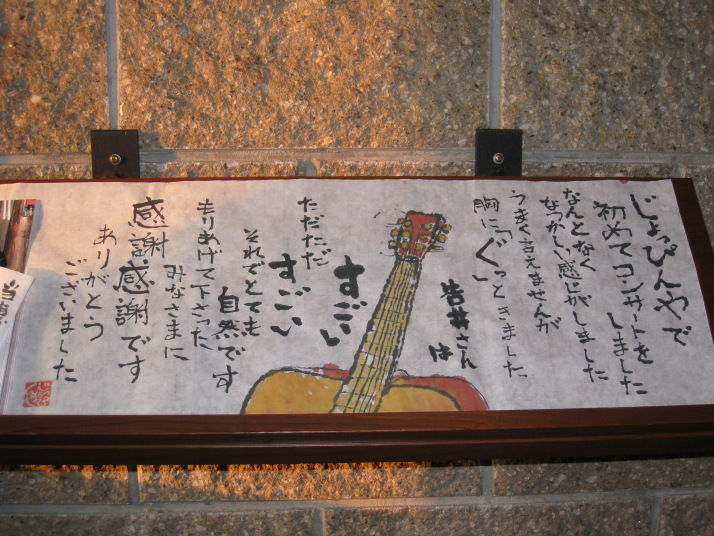 じょっぴんやで
初めてコンサートを
しました
なんとなく
なつかしい感じがしました
うまく言えませんが
胸に「ぐっ」ときました。
岩井さん
は
すごい
すごい
ただただ
それでとても
自然です
もりあげて下さった
みなさまに
感謝感謝です
ありがとう
ございました